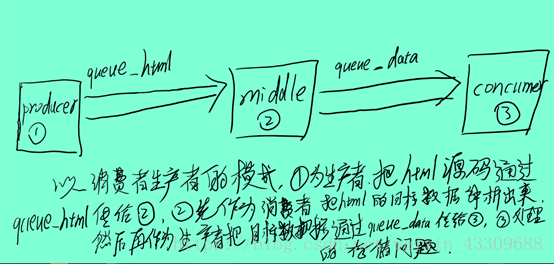 queue_html
queue_data
producer
①
middle
②
concumer
③
以消费者生产者的模式,①为生产者,把html源码通过
queue_html传给②,②先作为消费者把html的目标数据解析出来.
然后再作为生产者把目标数据通过queue_data传给③,③处理
的存储问题.
43309688